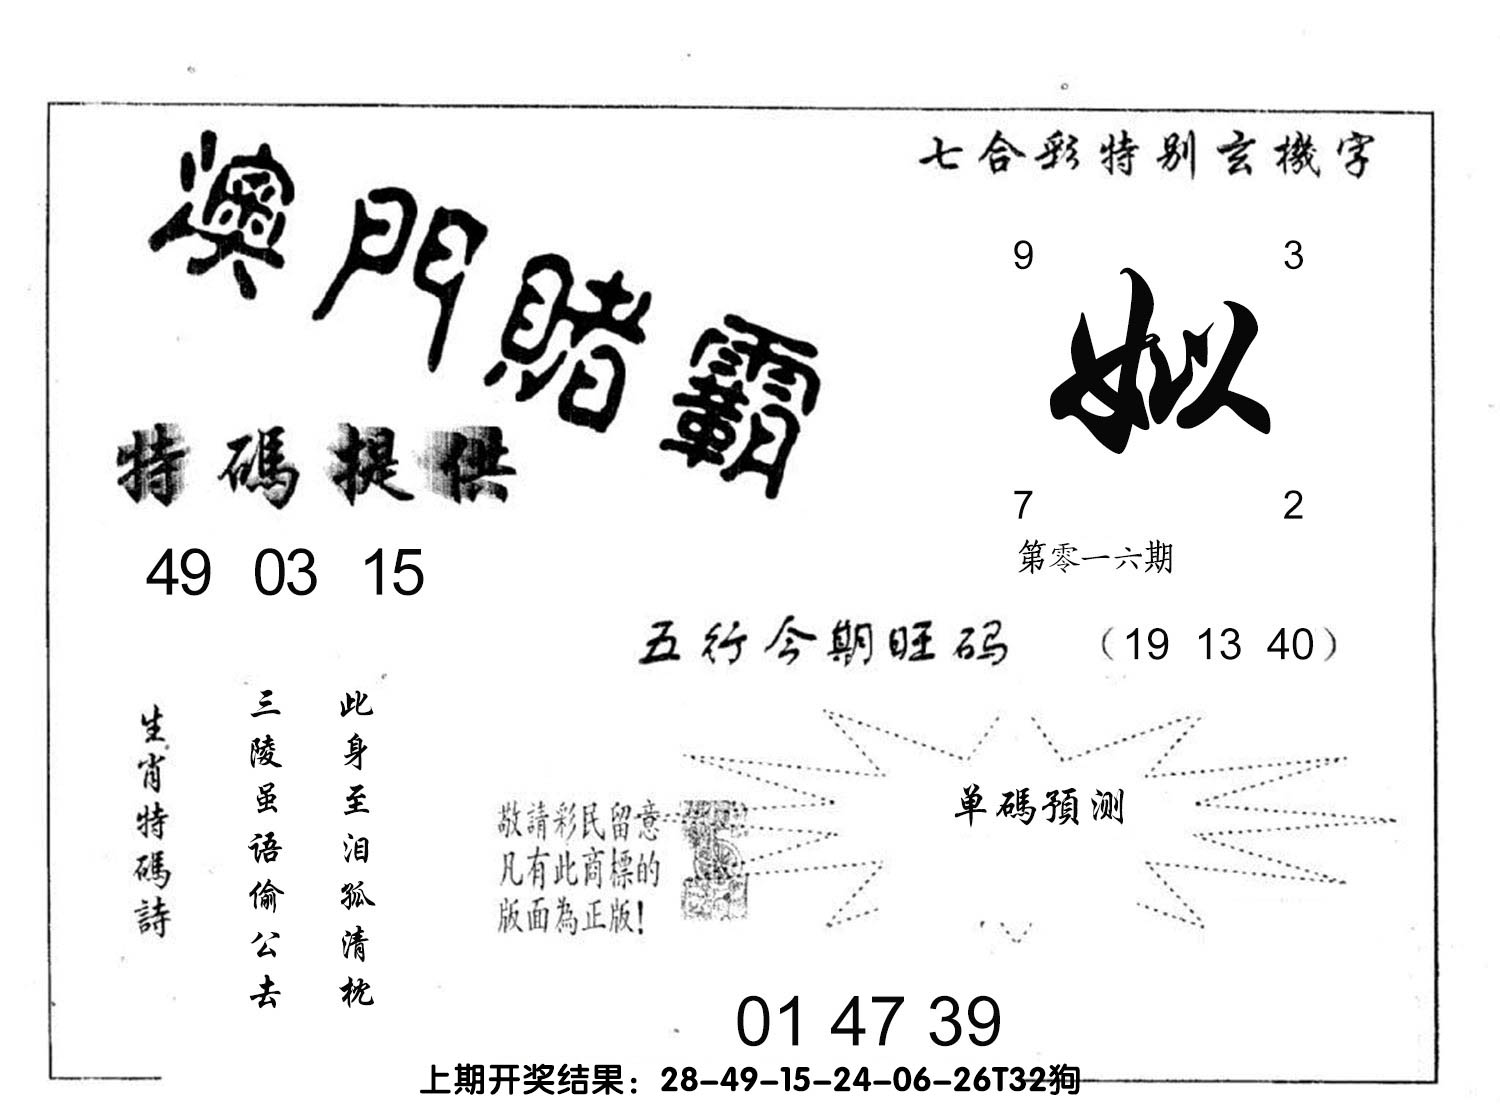 七合彩特别玄機字
澳門賭霸
9 3
姒
7 2
第零一六期
特碼提供
49 03 15
五行今期旺码 （19 13 40）
此身至泪孤清枕
三陵虽语偷公去
生肖特碼詩
单碼預测
敬請彩民留意
凡有此商標的
版面為正版！
01 47 39
上期开奖结果：28-49-15-24-06-26T32狗